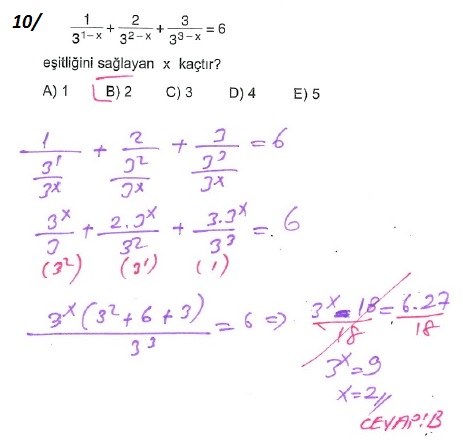 10/ 1/3^(1-x) + 2/3^(2-x) + 3/3^(3-x) = 6
eşitliğini sağlayan x kaçtır?
A) 1 B) 2 C) 3 D) 4 E) 5
1/(3^1/3^x) + 2/(3^2/3^x) + 3/(3^3/3^x) = 6
3^x/3 + 2.3^x/3^2 + 3.3^x/3^3 = 6
(3^2) (3^1) (1)
3^x(3^2+6+3)/3^3 = 6 ⇒ 3^x 18/18 = 6.27/18
3^x=9
x=2//
CEVAP!B